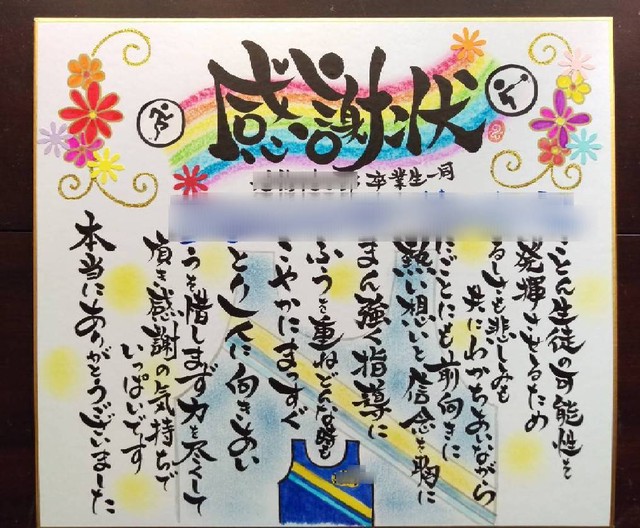 感謝状
卒業生一同
とん生徒の可能性を
発揮させるため
悲しみも
共にわかちあいながら
にごとにも前向きに
熱い想いと信念を胸に
まん強く指導に
ふうを重ねどんな時も
こやかにまっすぐ
とり一人に向きあい
うを惜しまず力を尽くして
頂き感謝の気持ちで
いっぱいです
本当にありがとうございました